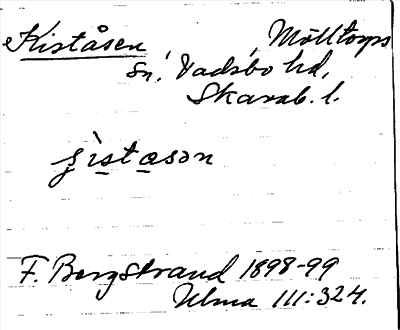 Kiståsen Mölltorps
sn, Vadsbo hd,
Skarab. l.
ʃìstasən
F. Bergstrand 1898-99
Ulma 111:324.